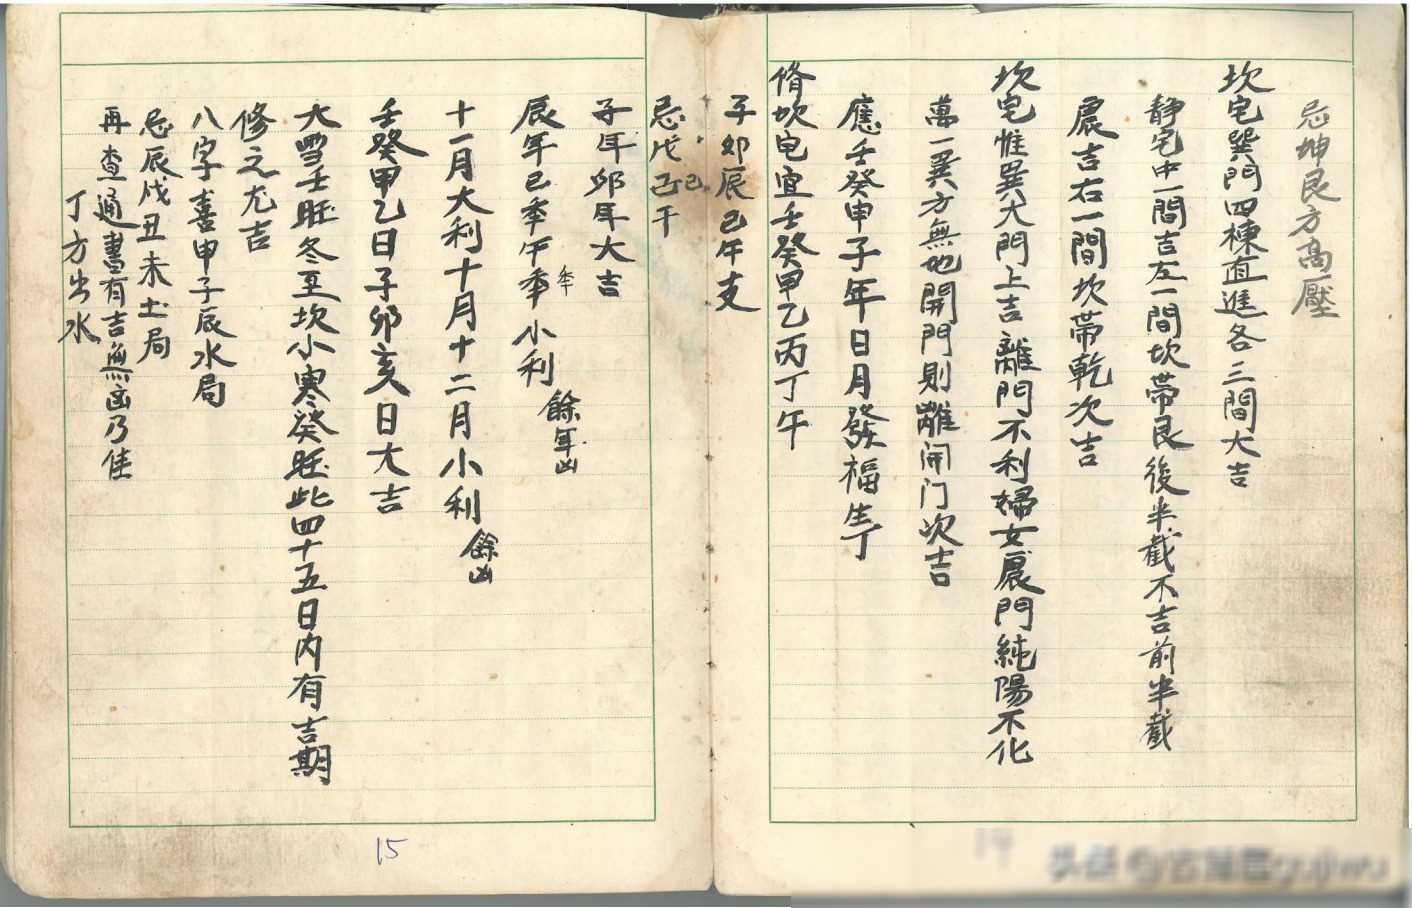 忌坤艮方高壓
坎宅巽門四棟直進各三間大吉
靜宅中一間吉左一間坎帶艮後半截不吉前半截
震吉右一間坎帶乾次吉
坎宅惟巽大門上吉離門不利婦女震門純陽不化
萬一巽方無地開門則離開门次吉
應壬癸申子年日月發福生丁
脩坎宅宜壬癸甲乙丙丁午
子卯辰巳午支
忌戊己干
己
子年卯年大吉
辰年巳年午年小利
年
餘年凶
十一月大利十月十二月小利
餘凶
壬癸甲乙日子卯亥日大吉
大雪壬旺冬至坎小寒癸旺此四十五日内有吉期
修之尤吉
八字喜申子辰水局
忌辰戌丑未土局
再查通書有吉無凶乃佳
丁方出水
15
14
头条 @古籍屋gujiwu